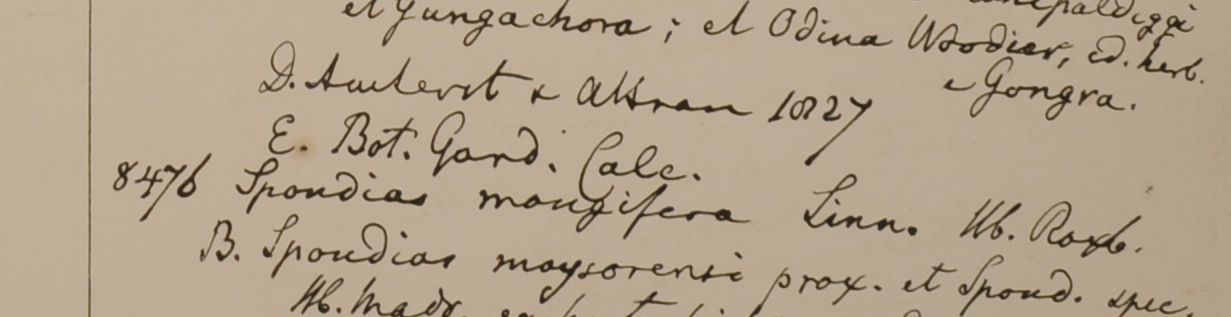 et Gungachora ; et Odina Woodier, ed. herb.
e Gongra.
D. Amherst & Attran 1827
E. Bot. Gard. Calc.
8476 Spondias mangifera Linn. Hb. Roxb.
B. Spondias maysorensi prox. et Spond. spec.
Hb. Madr.